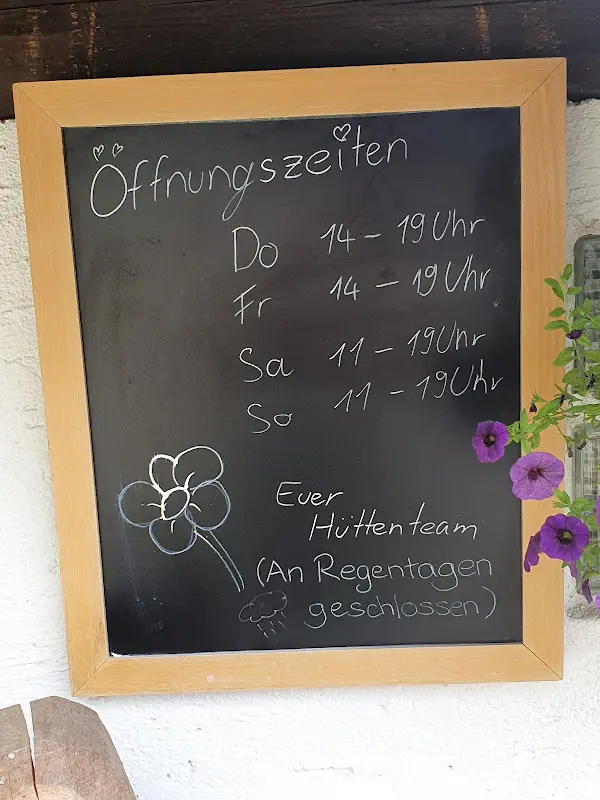 Öffnungszeiten
Do 14 - 19 Uhr
Fr 14 - 19 Uhr
Sa 11 - 19 Uhr
So 11 - 19 Uhr
Euer
Hüttenteam
(An Regentagen
geschlossen)